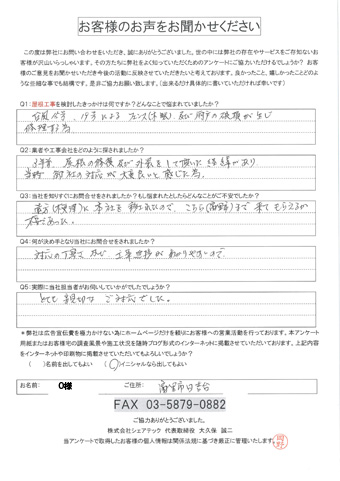 お客様のお声をお聞かせください
この度は弊社にお問い合わせをいただき、誠にありがとうございました。世の中には弊社の存在やサービスをご存知ないお
客様が沢山いらっしゃいます。その方たちに弊社をよく知っていただくためのアンケートにご協力いただけるでしょうか？お客
様のご意見をお聞かせいただき今後の活動に反映させていただきたいと考えております。良かったこと、嬉しかったことどのよ
うな些細な事でも結構です。是非ご協力お願い致します。(出来るだけ具体的に書いていただければ幸いです)
Q1:屋根工事を検討したきっかけは何ですか？どんなことで悩まれていましたか？
19号による フェンス 及び の破損が
修理する為
Q2:業者や工事会社をどのように探されましたか？
3年前、屋根の修繕及び外装をして頂いた経緯があり
当時 御社の対応が大変良いと感じた為。
Q3:当社を知りすぐにお問合せをされましたか？もし悩まれたとしたらどんなことがご不安でしたか？
本社を移されたので、こちら まで来てもらえるか
不安だった。
Q4:何が決め手となり当社にお問合せをされましたか？
対応の丁寧さ 及び、工事 がわかりやすいので
Q5:実際に当社担当者がお伺いしていかがでしたでしょうか？
とても親切な ご対応でした。
＊弊社は広告宣伝費を極力かけない為にホームページだけを頼りにお客様への営業活動を行っております。本アンケート
用紙またはお客様宅の調査風景や施工状況を随時ブログ形式のインターネットに掲載させていただいております。上記内容
をインターネットや印刷物に掲載させていただいてもよろしいでしょうか？
( )名前を出してもよい (○)イニシャルなら出してもよい
お名前: O様 ご住所:
FAX 03-5879-0882
ご協力ありがとうございました。
株式会社シェアテック 代表取締役 大久保 誠二
当アンケートで取得したお客様の個人情報は関係法規に基づき厳正に管理いたします。